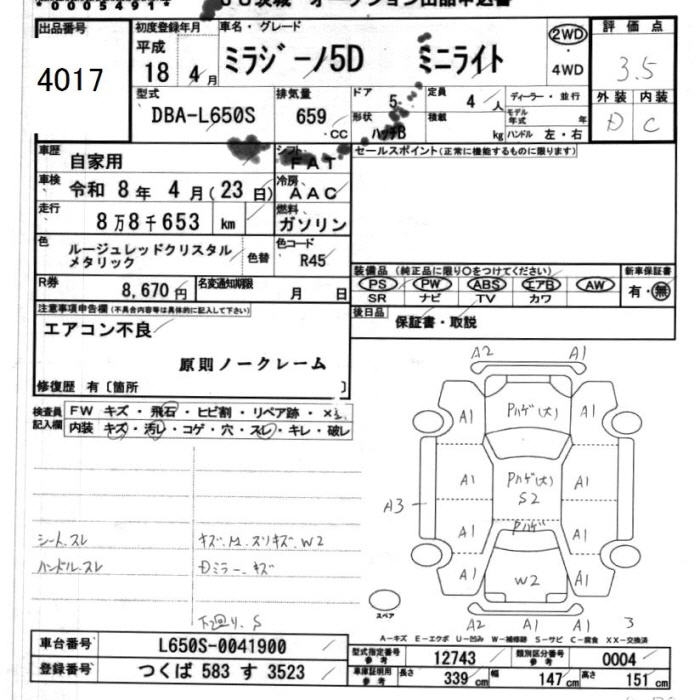 00054914
オークション出品申込書
出品番号
4017
初度登録年月
平成
18 4月
車名・グレード
ミラジーノ5D ミニライト
2WD
4WD
評価点
3.5
外装 内装
D C
型式
DBA-L650S
排気量
659
.CC
ドア
5
形状
ハッチB
定員
4人
積載
kg
ディーラー・並行
モデル年式 年
ハンドル 左・右
車歴
自家用
シフト
FAT
車検
令和 8年 4月(23日)
冷房
AAC
走行
8万8千653 km
燃料
ガソリン
色
ルージュレッドクリスタル
メタリック
色替
色コード
R45
R券
8,670円
名変通知期限
月 日
セールスポイント(正常に機能するものに限ります)
装備品 (純正品に限り○をつけてください)
PS PW ABS エアB AW
SR ナビ TV カワ
新車保証書
有・無
後日品
保証書・取説
注意事項申告欄(不具合内容等は具体的に記入して下さい)
エアコン不良
原則ノークレーム
修復歴 有〔箇所 〕
検査員
記入欄
FW キズ・飛石・ヒビ割・リペア跡・×
内装 キズ・汚レ・コゲ・穴・スレ・キレ・破レ
シート.スレ
ハンドル.スレ
キズ.M.スリキズ.W2
Dミラー.キズ
下回り.S
A2 A1
A1 Pハゲ(大) A1
A1 Pハゲ(大) S2 A1
A3
A1 Pハゲ A1
A1 W2 A1
A2 A1 A1
3
スペア
A-キズ E-エクボ U-凹み W-補修跡 S-サビ C-腐食 XX-交換済
車台番号
L650S-0041900
登録番号
つくば 583 す 3523
型式指定番号
参考
12743
類別区分番号
参考
0004
車庫証明用
参考
長さ
339 cm
幅
147 cm
高さ
151 cm